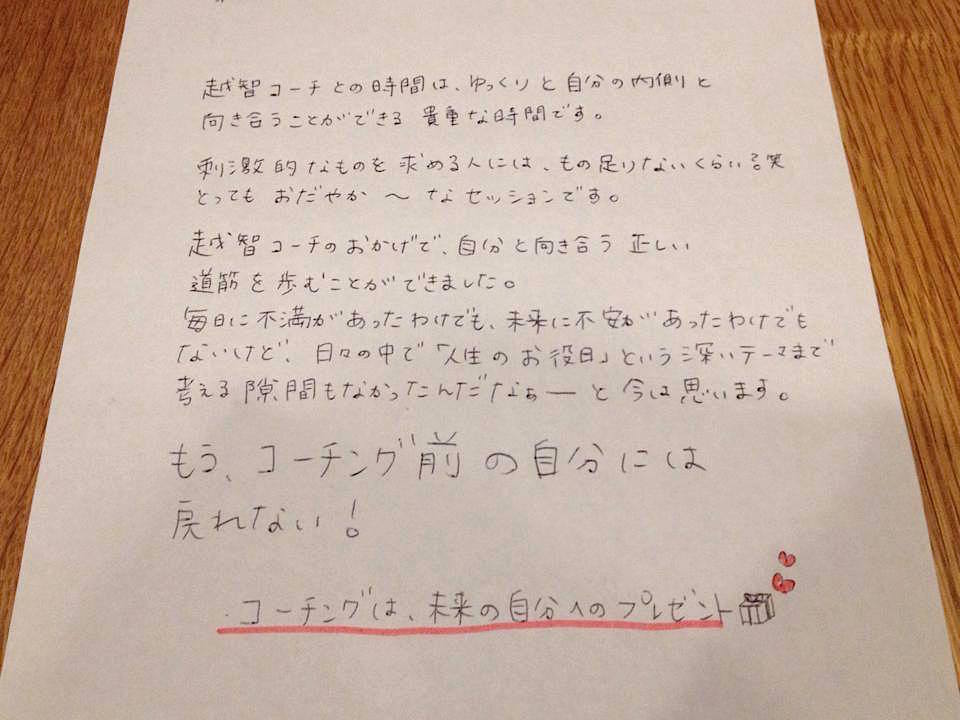 越智コーチとの時間は、ゆっくりと自分の内側と
向き合うことができる貴重な時間です。
刺激的なものを求める人には、もの足りないくらい。笑
とってもおだやか〜なセッションです。
越智コーチのおかげで、自分と向き合う正しい
道筋を歩むことができました。
毎日に不満があったわけでも、未来に不安があったわけでも
ないけど、日々の中で「人生のお役目」という深いテーマまで
考える隙間もなかったんだなぁーと今は思います。
もう、コーチング前の自分には
戻れない!
コーチングは、未来の自分へのプレゼント